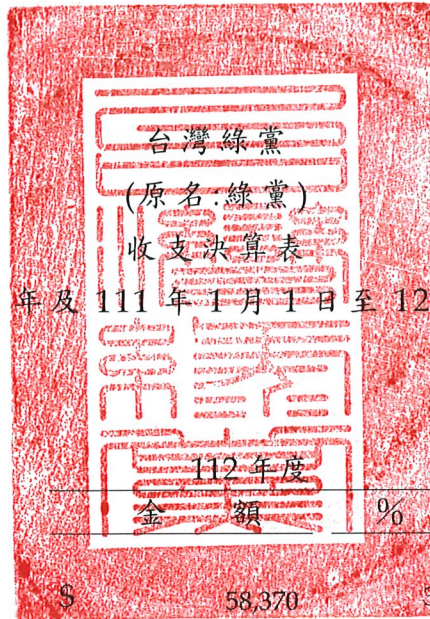 台灣綠黨
(原名:綠黨)
收支決算表
年及 111 年 1 月 1 日至 12
112 年度
金 額 %
$ 58,370